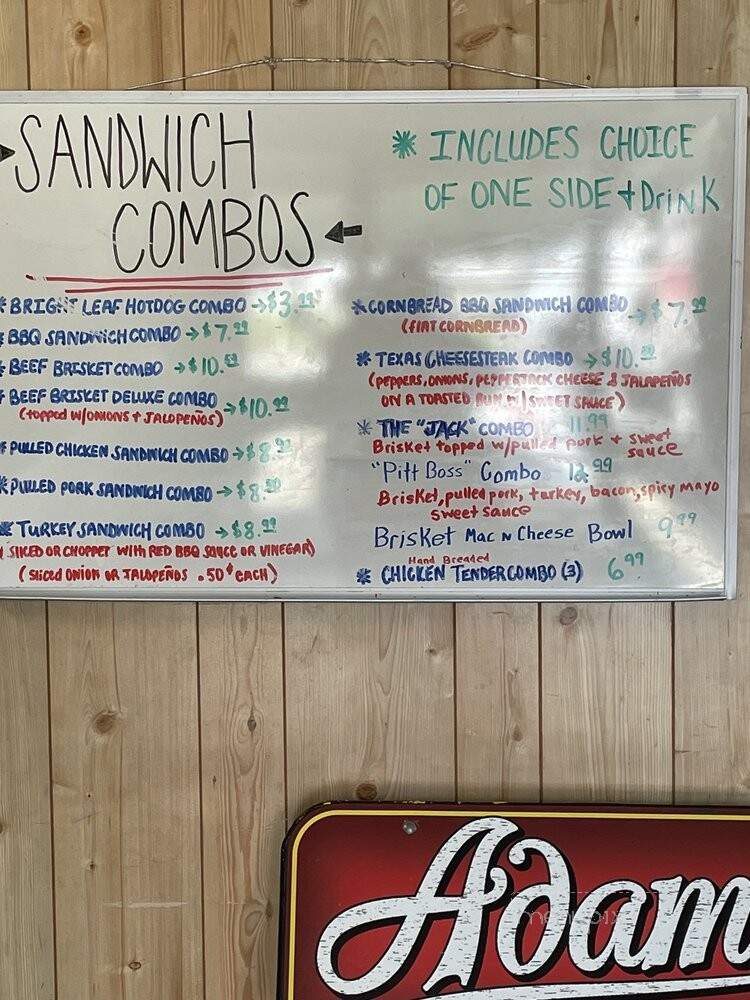 SANDWICH
COMBOS
* INCLUDES CHOICE
OF ONE SIDE + DrinK
* BRIGHT LEAF HOTDOG COMBO → $3.99
* BBQ SANDWICH COMBO → $7.99
* BEEF BRISKET COMBO → $10.
* BEEF BRISKET DELUXE COMBO → $10.99
(topped w/ONIONS + JALOPEÑOS)
* PULLED CHICKEN SANDWICH COMBO → $8.99
* PULLED PORK SANDWICH COMBO → $8.
* TURKEY SANDWICH COMBO → $8.99
( SLICED OR CHOPPET WITH RED BBQ SAUCE OR VINEGAR)
(SLICED ONION OR JALOPEÑOS .50¢ EACH)
* CORNBREAD BBQ SANDWICH COMBO → $7.99
(FLAT CORNBREAD)
* TEXAS CHEESESTEAK COMBO → $10.
(PEPPERS, ONIONS, PEPPERJACK CHEESE & JALAPEÑOS
ON A TOASTED BUN W/ SWEET SAUCE)
* THE "JACK" COMBO 11.99
Brisket topped w/pulled pork + sweet
sauce
"Pitt Boss" Combo 12.99
Brisket, pulled pork, turkey, bacon, spicy mayo
sweet sauce
Brisket Mac N Cheese Bowl 9.99
Hand Breaded
* CHICKEN TENDER COMBO (3) 6.99
Adam